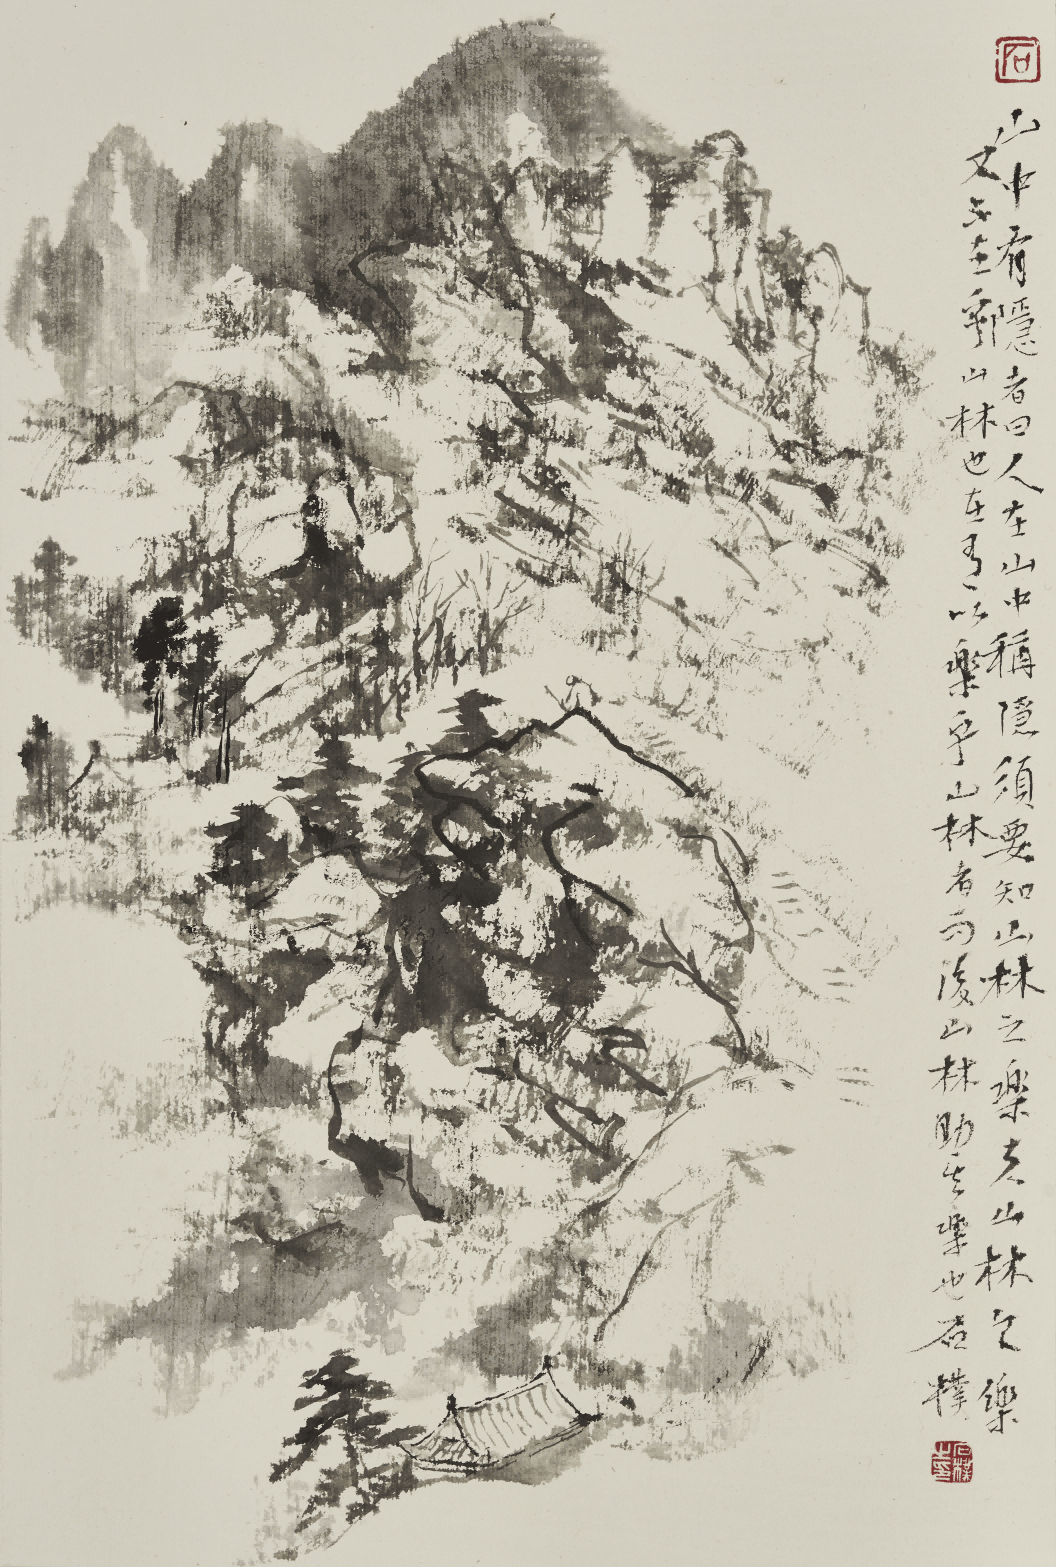 石
山中有隱者曰人在山中稱隱須要知山林之樂夫山林之樂
又不在乎山林也在有以樂乎山林者而後山林助其樂也石樸